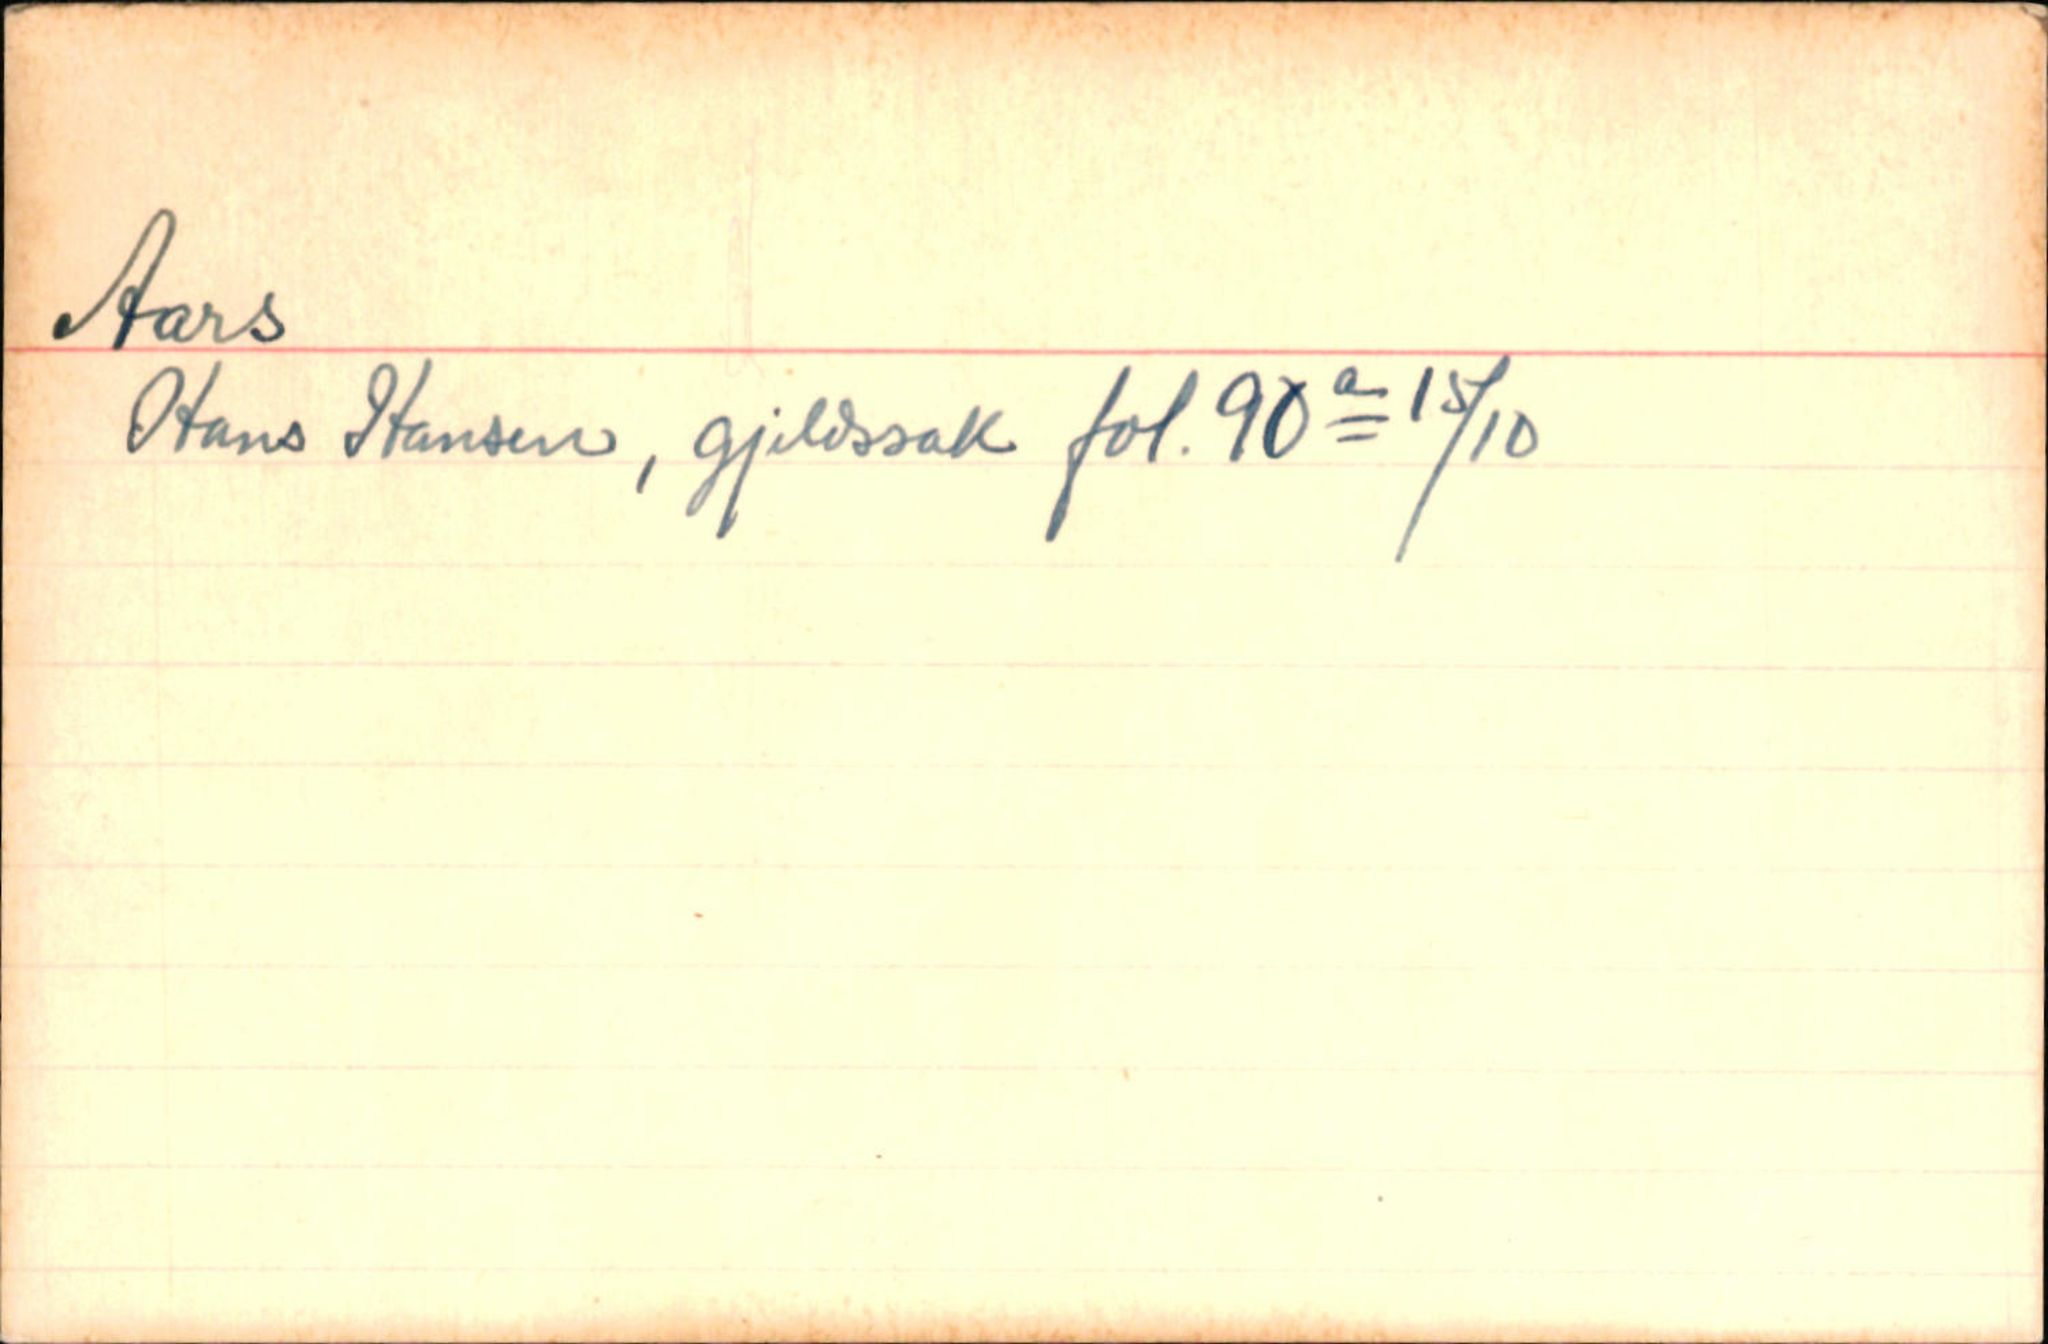 Aars
Hans Hansen, gjeldssak fol. 90a 15/10